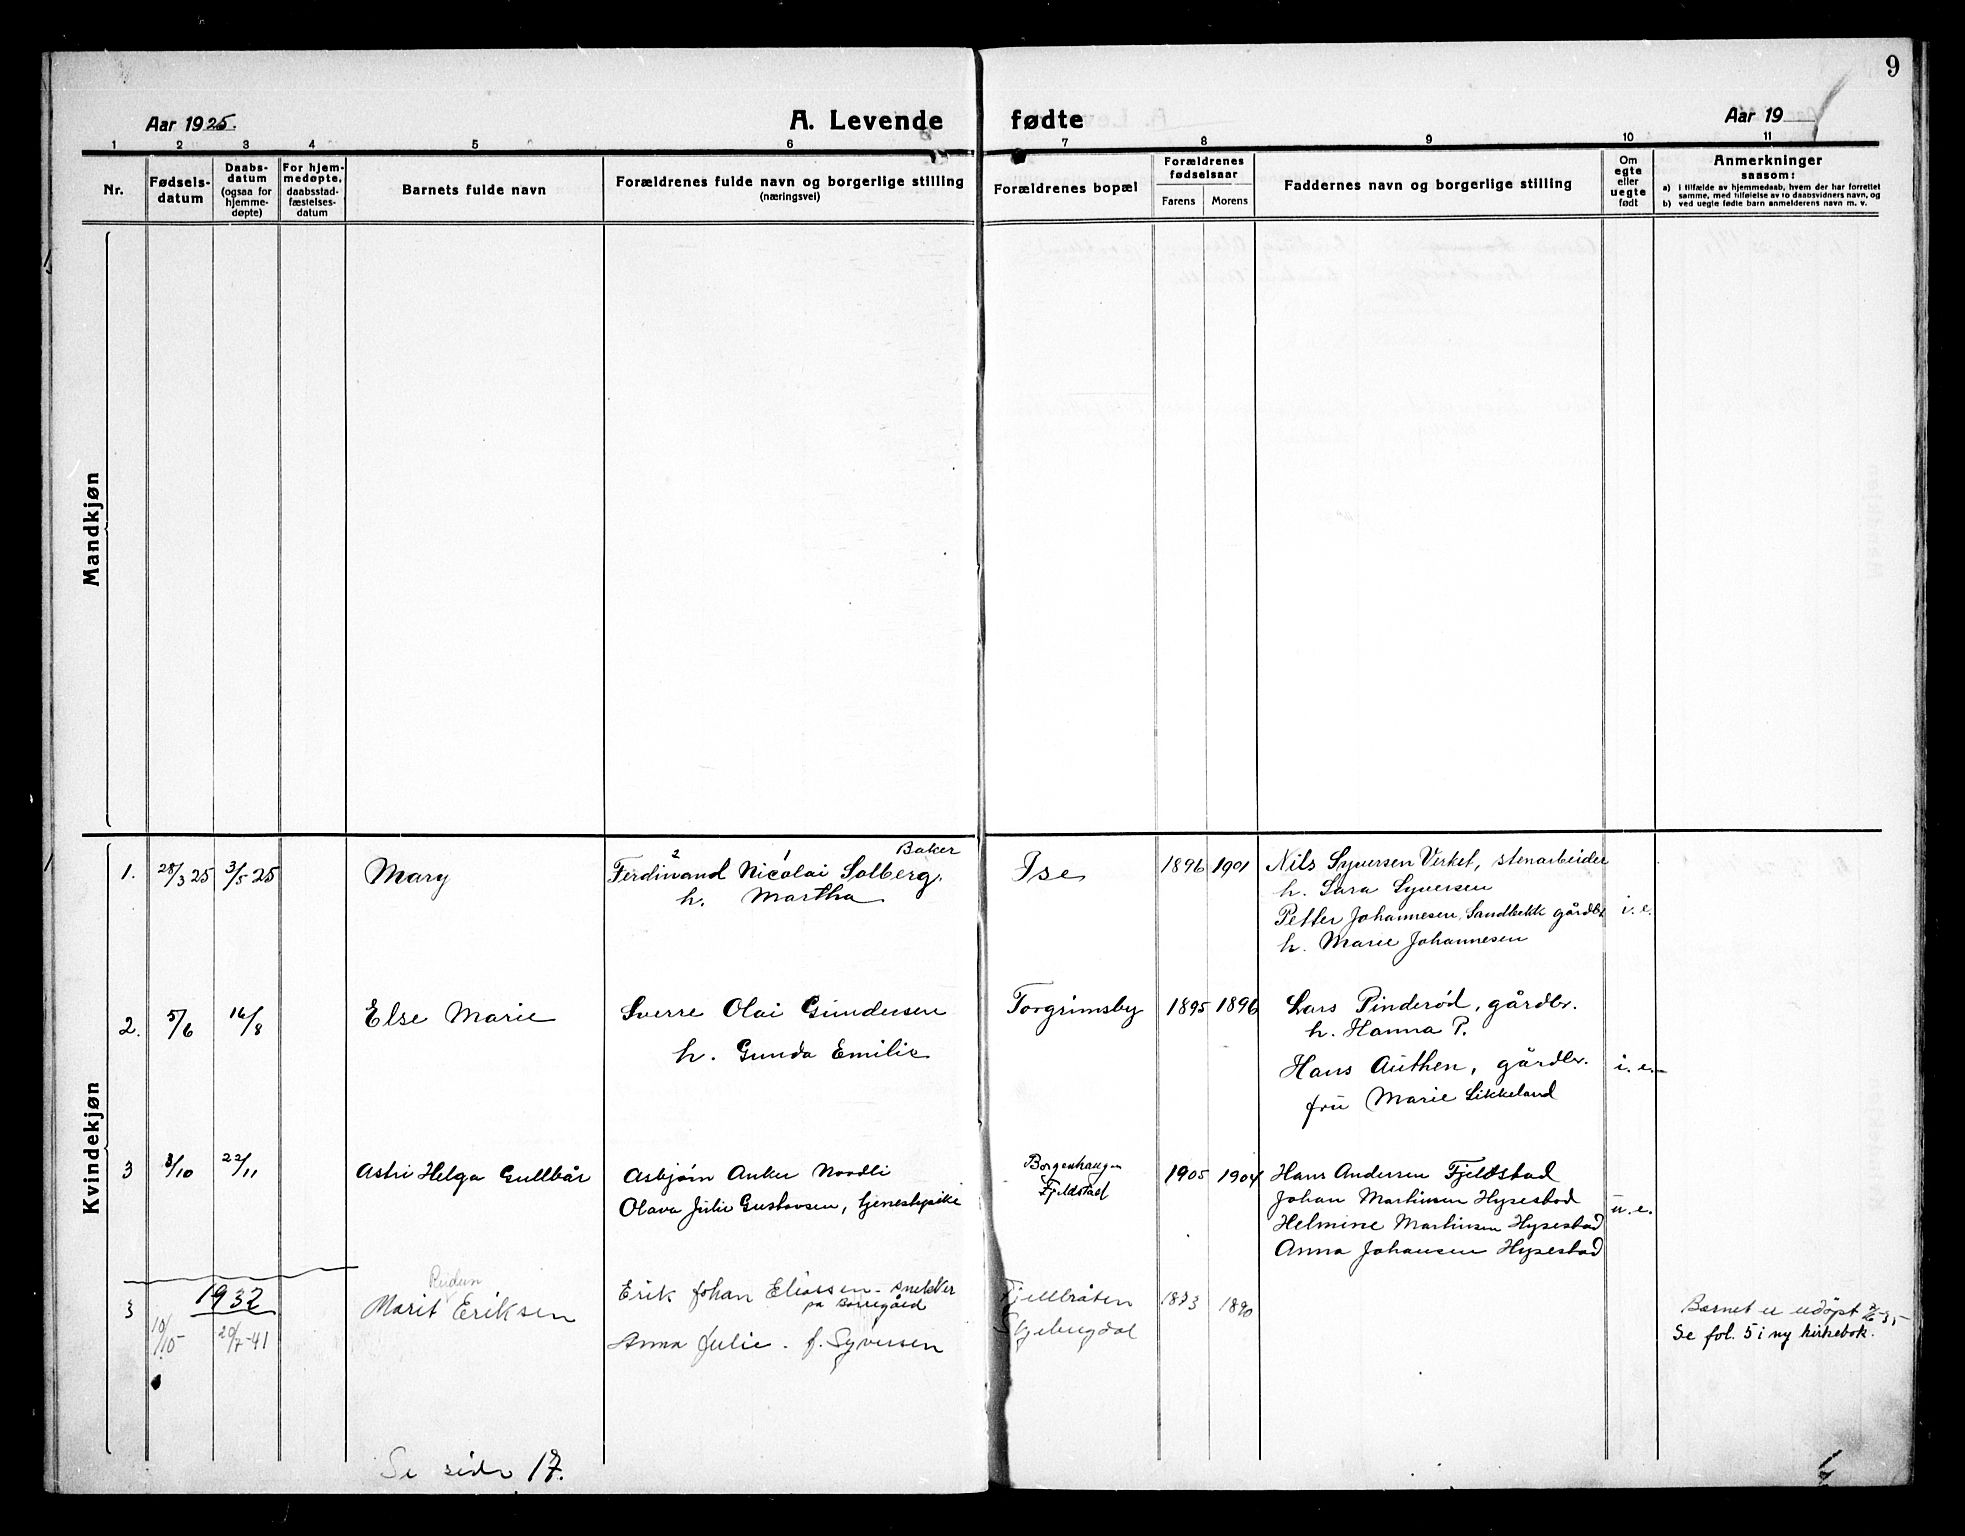 9
Aar 1925.
A. Levende fødte
Aar 19
1 2 3 4 5 6 7 8 9 10 11
Nr.
Fødsels-
datum
Daabs-
datum
(ogsaa for
hjemme-
døpte)
For hjem-
medøpte,
daabsstad-
fæstelses-
datum
Barnets fulde navn
Forældrenes fulde navn og borgerlige stilling
(næringsvei)
Forældrenes bopæl
Forældrenes
fødselsaar
Farens Morens
Faddernes navn og borgerlige stilling
Om
egte
eller
uegte
født
Anmerkninger
saasom:
a) i tilfælde av hjemmedaab, hvem der har forrettet
samme, med tilføielse av to daabsvidners navn, og
b) ved uegte fødte barn anmelderens navn m. v.
Mandkjøn
Kvindekjøn
1. 28/3 25 3/5 25 Mary
2 1 Baker
Ferdinand Nicolai Solberg.
h. Martha
Ise 1896 1901
Nils Syversen Virket, stenarbeider
h. Sara Syversen
Petter Johannesen, Sandbekk gårdbr.
h. Marie Johannesen
i. e.
2. 5/6 16/8 Else Marie
Sverre Olai Gundersen
h. Gunda Emilie
Torgrimsby 1895 1896
Lars Pinderød, gårdbr.
h. Hanna P.
Hans Authen, gårdbr.
fru Marie Likkeland
i. e.
3 3/10 22/11 Astri Helga Gullbår
Asbjørn Anker Noodli
Olava Julie Gustavsen, tjenestepike
Borgenhaugen
Fjeldstad
1905 1904
Hans Andersen Fjeldstad
Johan Martinsen Hysestad
Helmine Martinsen Hysestad
Anna Johansen Hysestad
u. e.
1932
3 10/10- 20/7-41
Reidun
Marit Eriksen
Erik Johan Eliassen - snekker
på Borregård
Anna Julie. f. Syversen
Fjellbråten
Skjebergdal
1873 1890
Barnet er udøpt
Se fol. 5 i ny kirkebok.
Se side 17.